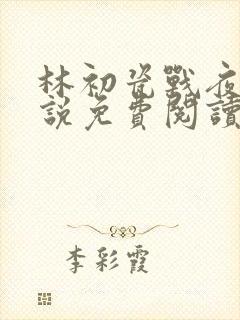 林初瓷戰夜
說免費閱讀
李彩霞